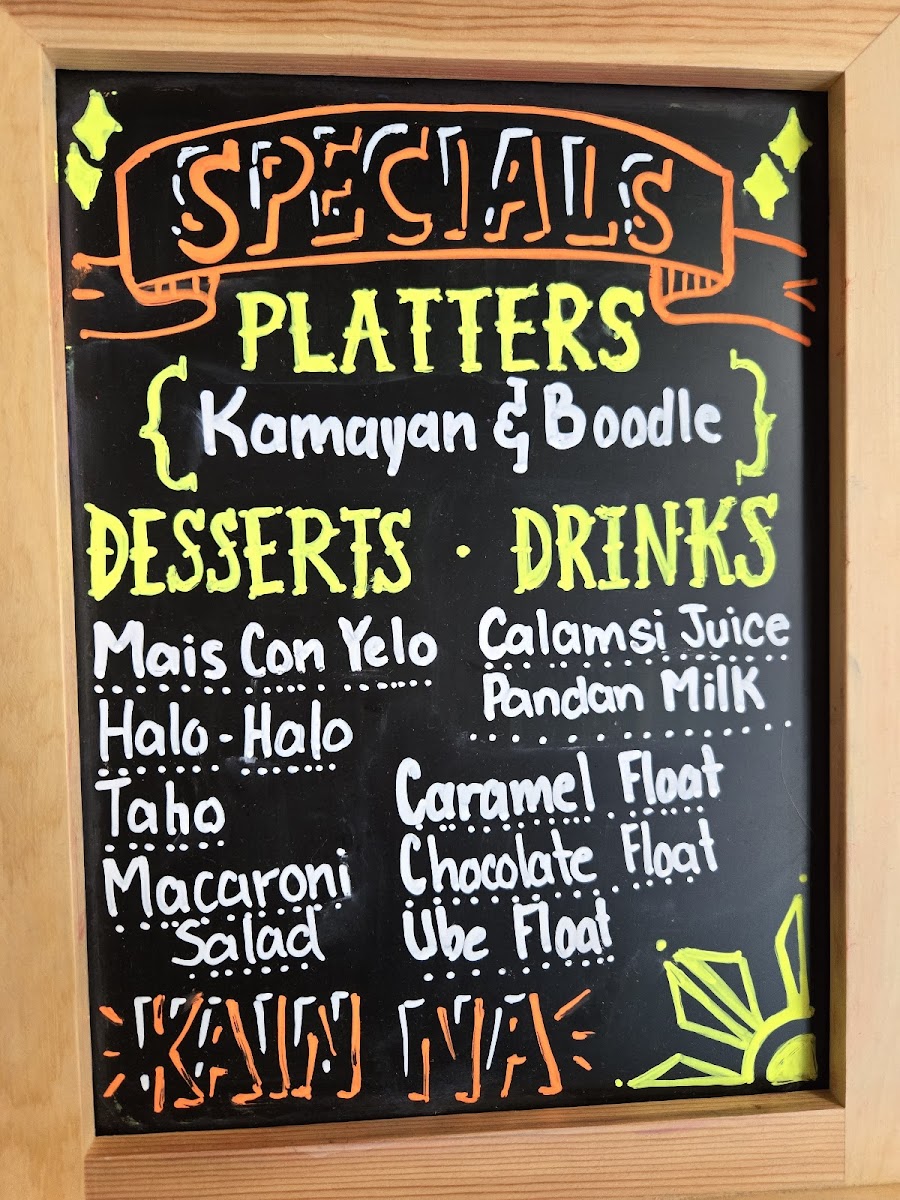 SPECIALS
PLATTERS
{ Kamayan & Boodle }
DESSERTS · DRINKS
Mais Con Yelo
Halo-Halo
Taho
Macaroni
Salad
Calamsi Juice
Pandan Milk
Caramel Float
Chocolate Float
Ube Float
KAIN NA